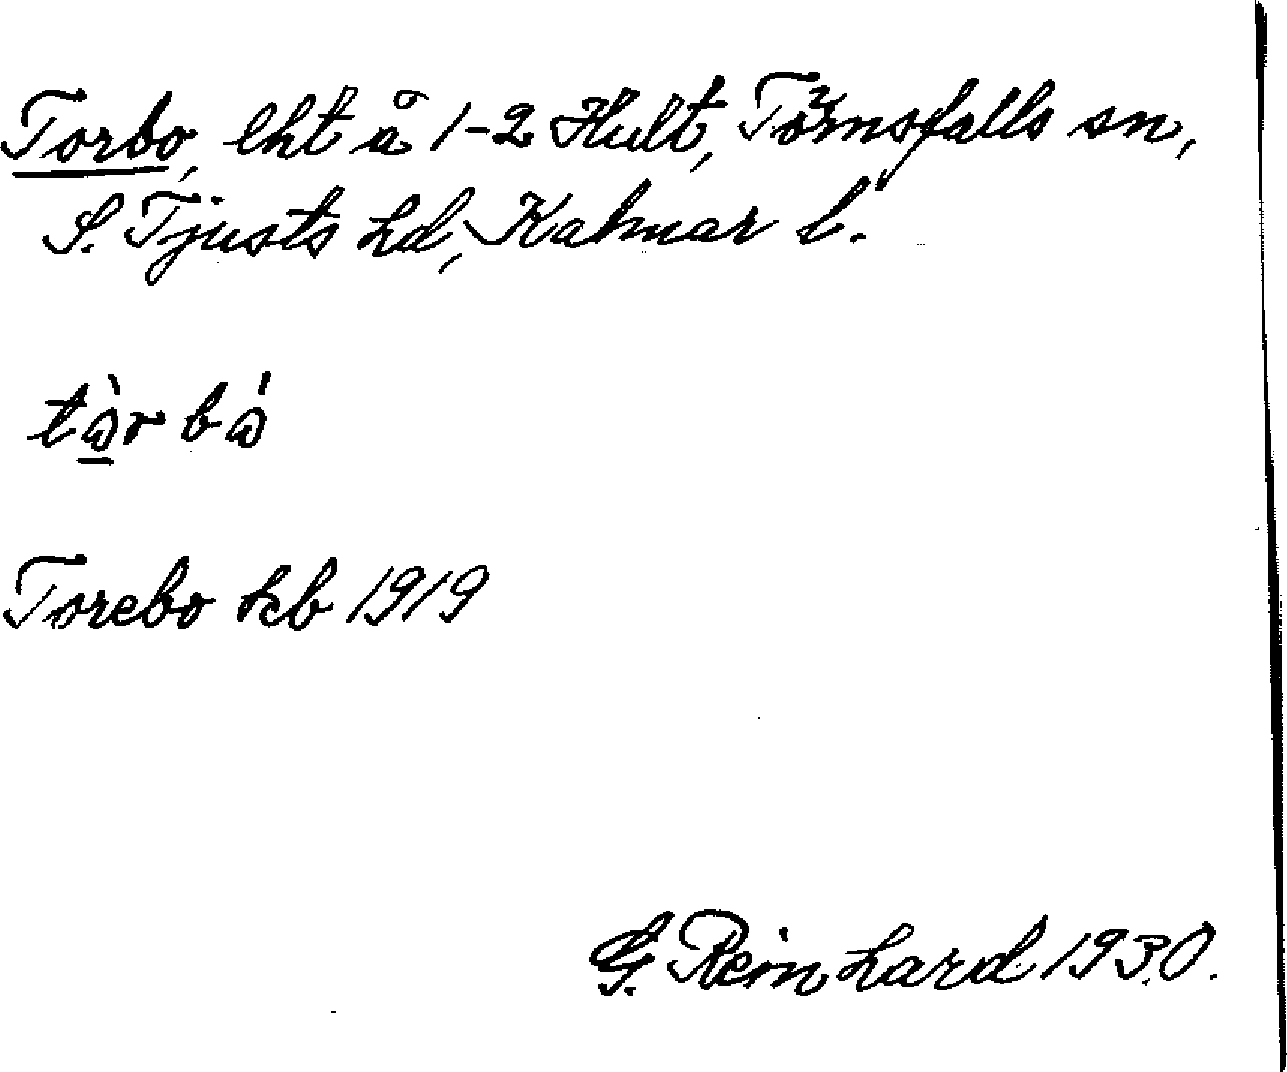 Torbo, lht å 1-2 Hult, Törnsfalls sn,
S. Tjusts hd, Kalmar l.
tò̱r bó
Torebo kb 1919
G. Reinhard 1930.